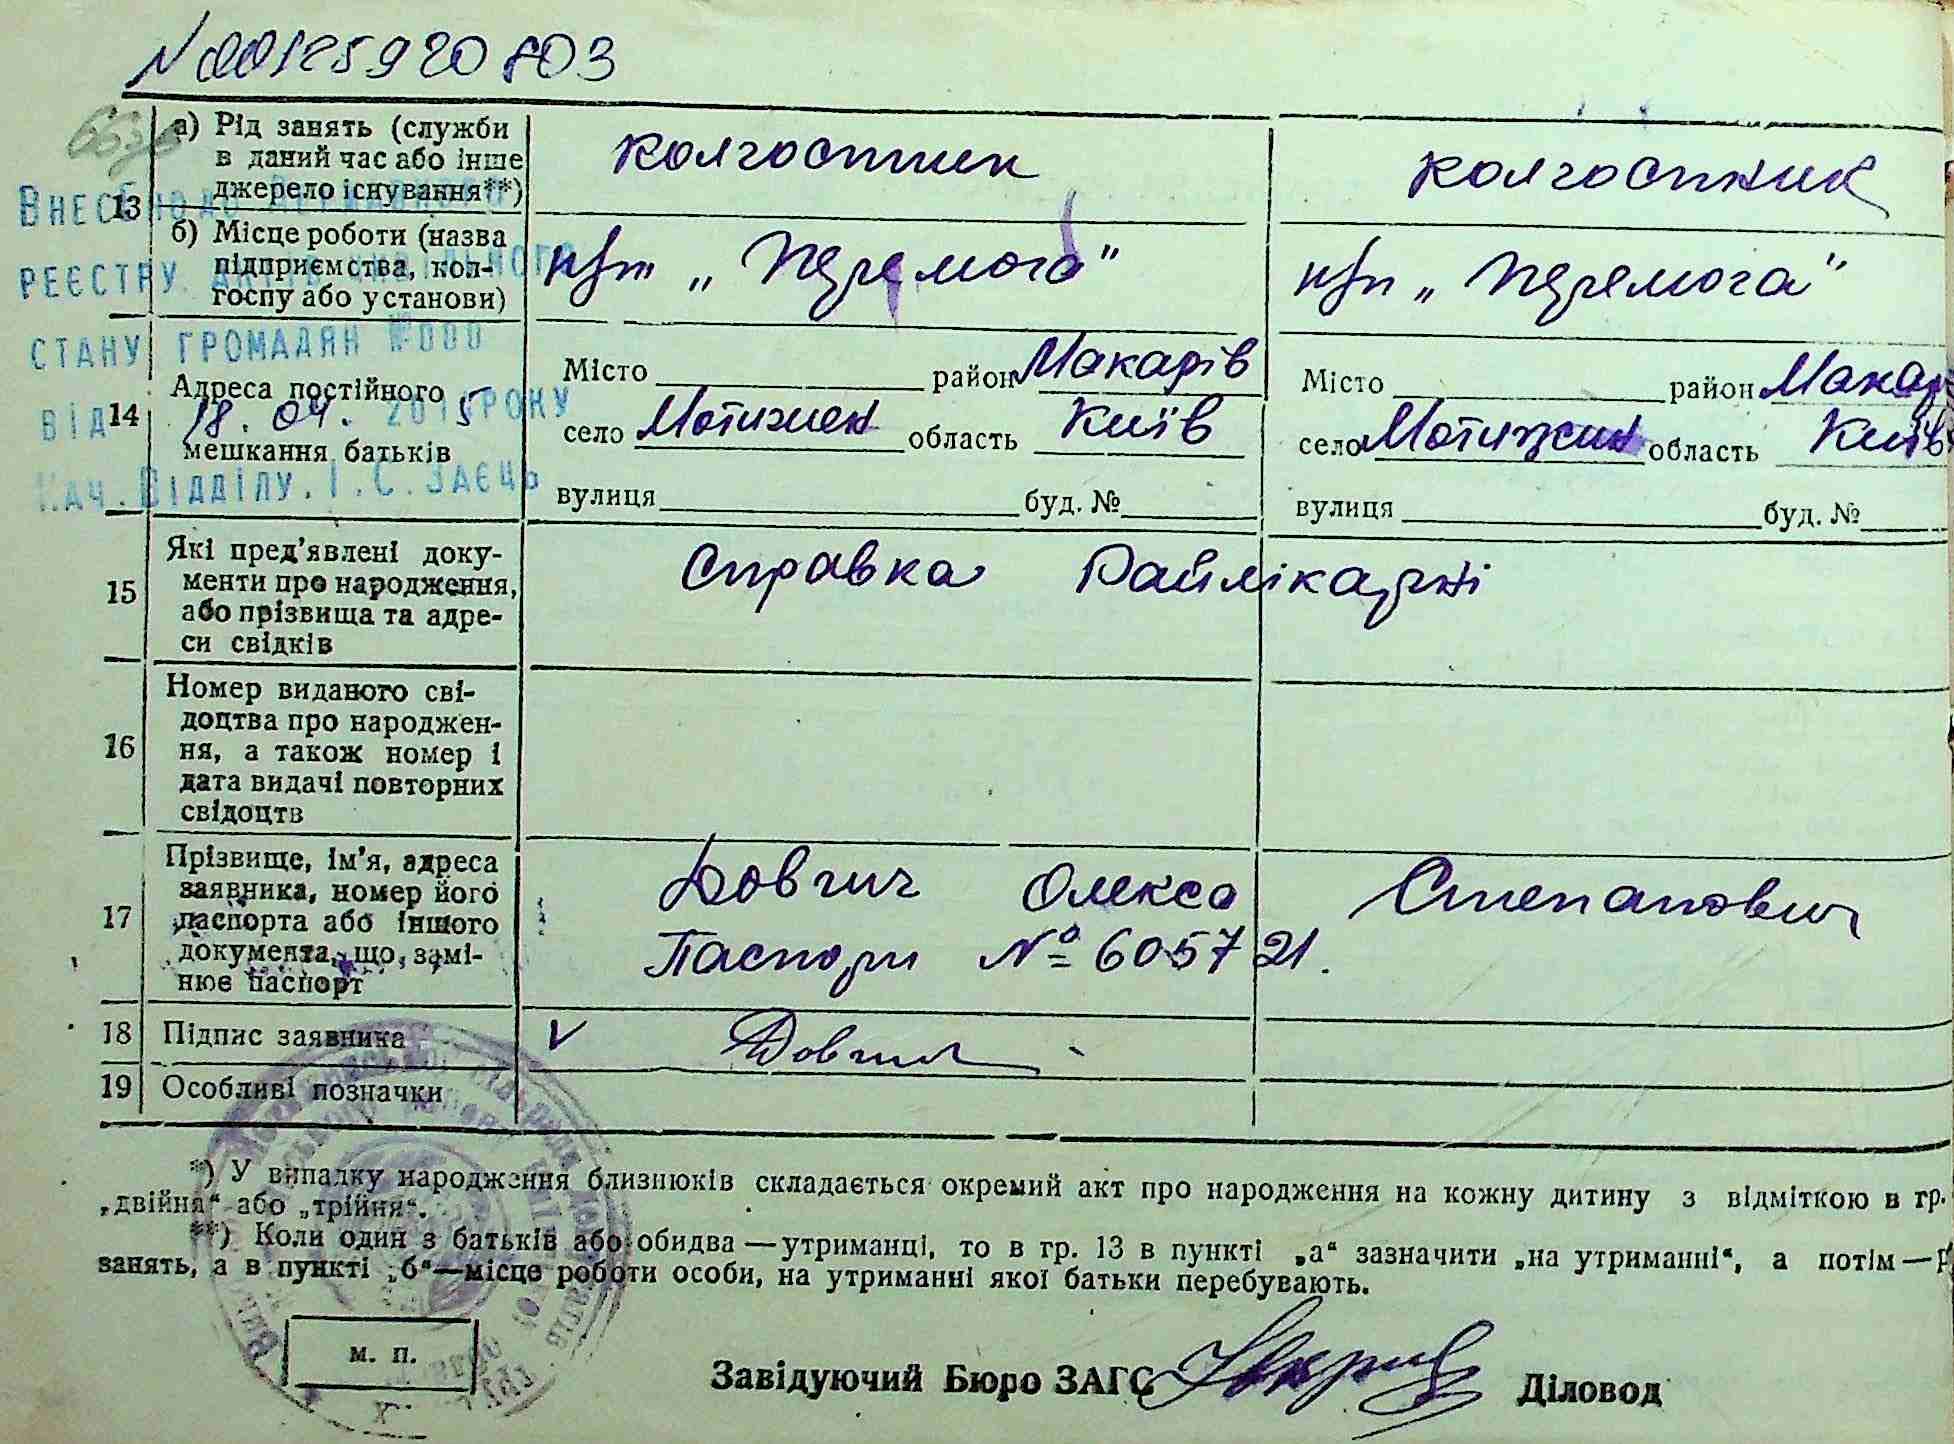 N 00125920803
а) Рід занять (служби
в даний час або інше
джерело існування**)
колгоспник
колгоспник
13
б) Місце роботи (назва
підприємства, кол-
госпу або установи)
к/г „Перемога"
к/г „Перемога"
Внесено до Державного
реєстру актів цивільного
стану громадян № 000
від 18.04. 2015 року
Нач. відділу. І.С. Заєць
14
Адреса постійного
мешкання батьків
Місто район Макарів
село Мотижин область Київ
вулиця буд. №
Місто район Макар
село Мотижин область Київ
вулиця буд. №
15
Які пред’явлені доку-
менти про народження,
або прізвища та адре-
си свідків
Справка Райлікарні
16
Номер виданого сві-
доцтва про народжен-
ня, а також номер і
дата видачі повторних
свідоцтв
17
Прізвище, ім’я, адреса
заявника, номер його
паспорта або іншого
документа, що замі-
нює паспорт
Довгич Олекса Степанович
Паспорт № 605721.
18
Підпис заявника
V Довгич
19
Особливі позначки
*) У випадку народження близнюків складається окремий акт про народження на кожну дитину з відміткою в гр.
„двійня“ або „трійня“.
**) Коли один з батьків або обидва—утриманці, то в гр. 13 в пункті „а“ зазначити „на утриманні“, а потім—р
занять, а в пункті „б“—місце роботи особи, на утриманні якої батьки перебувають.
м. п.
Завідуючий Бюро ЗАГС
Діловод